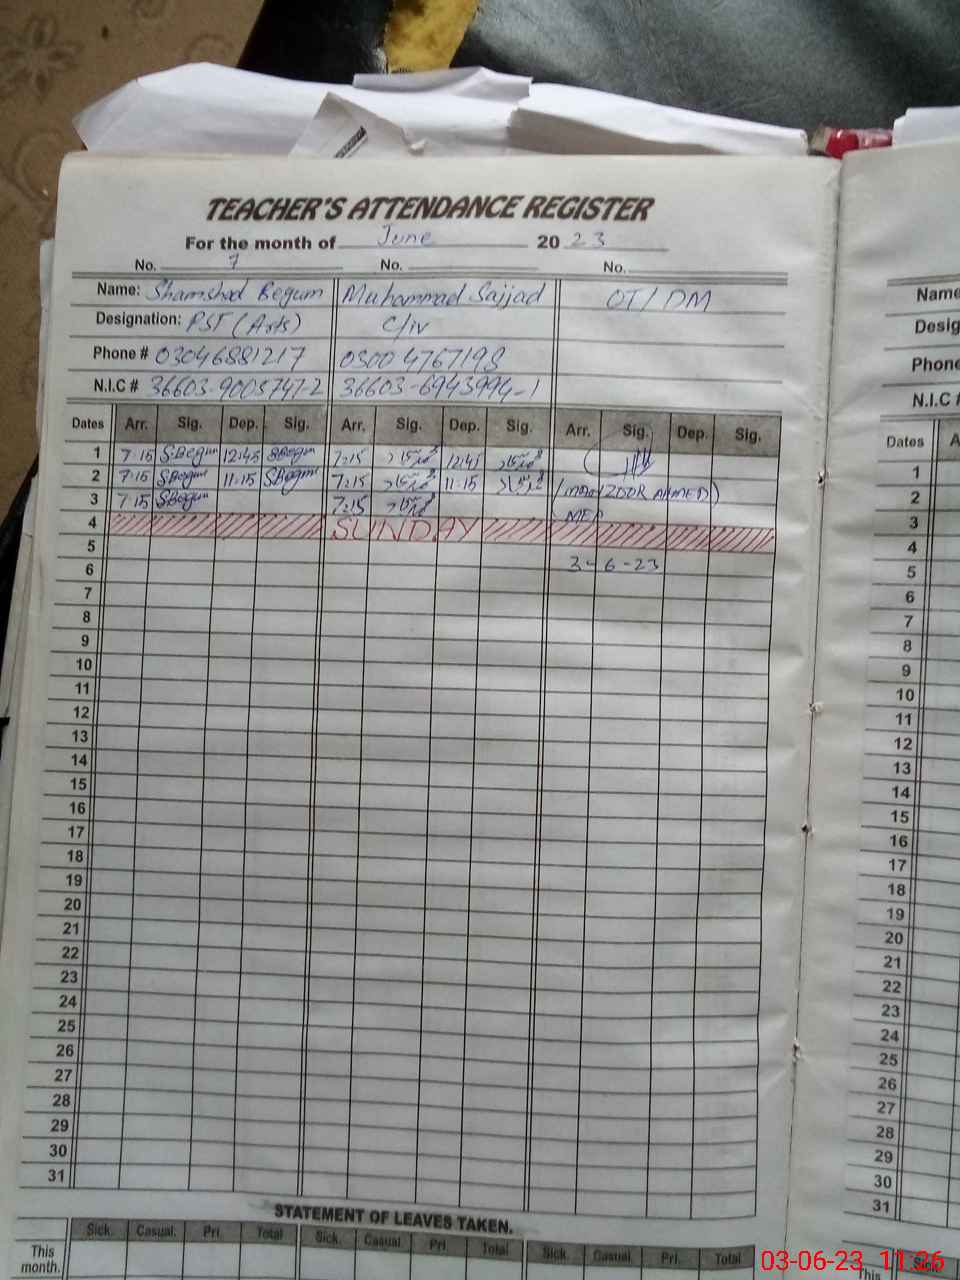 TEACHER'S ATTENDANCE REGISTER
For the month of June 2023
No. 7 No. No.
Name: Shamshad Begum Muhammad Sajjad OT/DM
Designation: PST (Arts) C/iv
Phone # 03046881217 0300 4767198
N.I.C # 36603-9005747-2 36603-6943994-1
Dates Arr. Sig. Dep. Sig. Arr. Sig. Dep. Sig. Arr. Sig. Dep. Sig.
1 7-15 S.Begum 12:45 SBegum 7:15 12:45
2 7-15 SBegum 11:15 SBegum 7:15 11:15 (MANZOOR AHMED)
3 7-15 SBegum 7:15
4 SUNDAY
5
6 3-6-23
7
8
9
10
11
12
13
14
15
16
17
18
19
20
21
22
23
24
25
26
27
28
29
30
31
STATEMENT OF LEAVES TAKEN.
Sick. Casual. Pri. Total Sick. Casual. Pri. Total Sick. Casual. Pri. Total
This month.
Name
Desig
Phone
N.I.C #
Dates A
1
2
3
4
5
6
7
8
9
10
11
12
13
14
15
16
17
18
19
20
21
22
23
24
25
26
27
28
29
30
31
Sick.
This
03-06-23 11:26